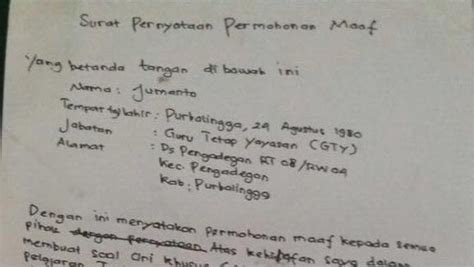 Surat Pernyataan Permohonan Maaf
Yang betanda tangan di bawah ini
Nama : Jumanto
Tempat tgl lahir : Purbalingga, 29 Agustus 1980
Jabatan : Guru Tetap Yayasan (GTY)
Alamat : Ds Pengadegan RT 08/RW04
Kec. Pengadegan
Kab: Purbalingga
Dengan ini menyatakan permohonan maaf kepada semua
pihak dengan pernyataan Atas kehilafan saya dalam
membuat soal
pelajaran